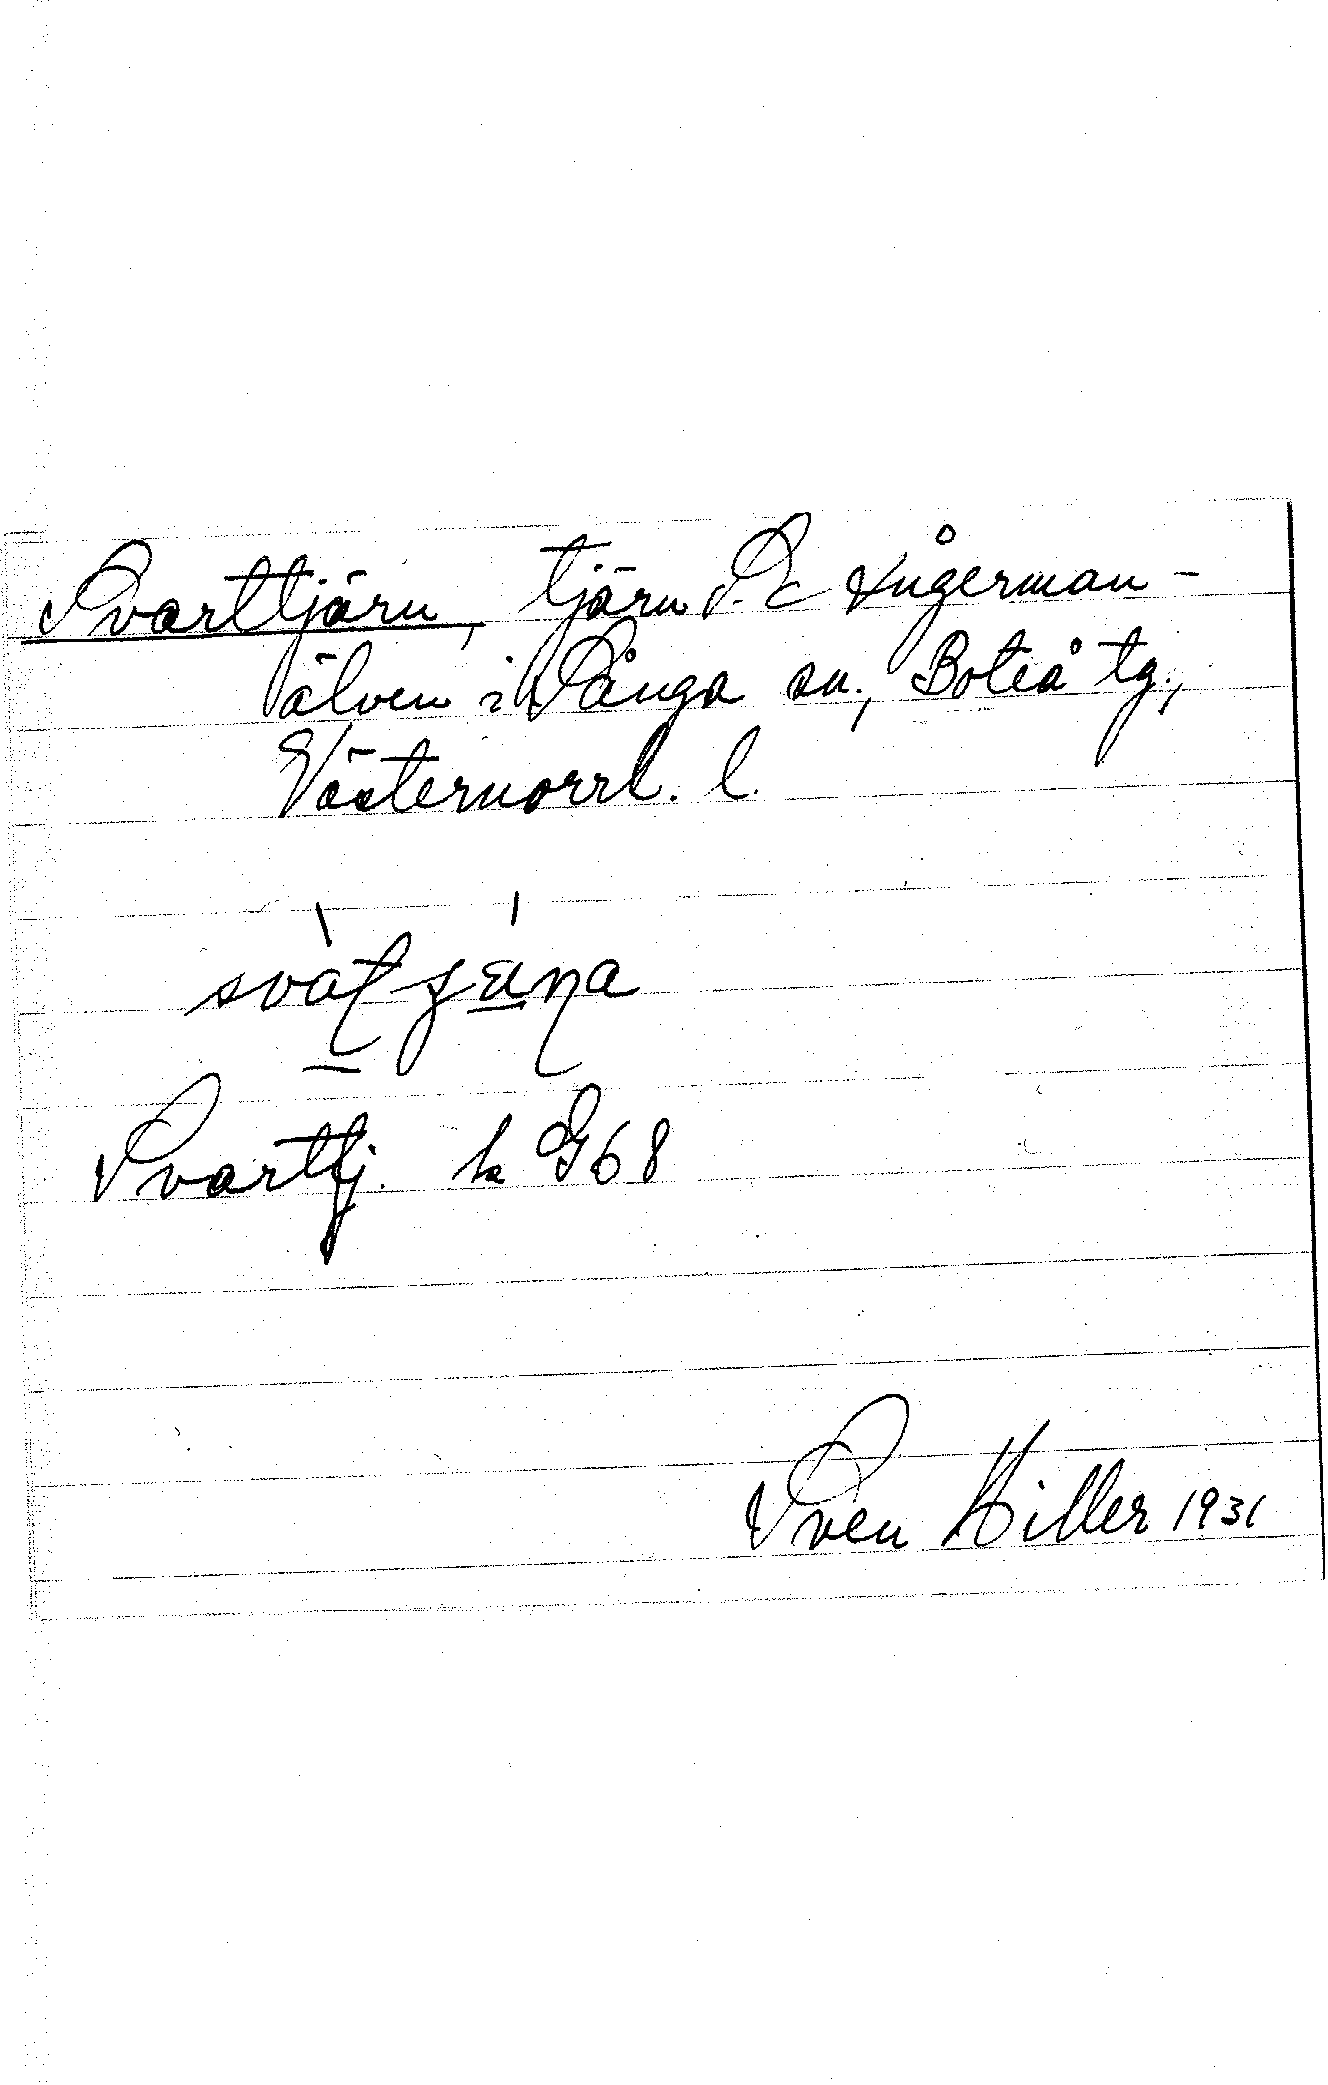 Svarttjärn, tjärn S. Ångerman-
älven i Sånga sn., Boteå tg.,
Västernorrl. l.
Svarttj. k G68
Sven Hiller 1931